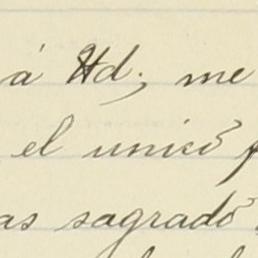 á Ud; me
el unicó
as sagradó